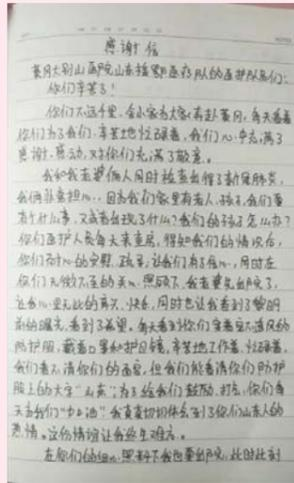 感谢信
黄冈大别山医院山东援鄂医疗队的医护人员们：
你们辛苦了！
你们不远千里，舍小家为大家，奔赴黄冈，每天看着
你们为了我们，辛苦地忙碌着，我们心中充满了
感谢、感动，对你们充满了敬意。
我和我老婆俩人同时检查出得了新冠肺炎，
我俩非常担心，因为我们家里有老人、孩子，我们要
有什么事，又或者出现了什么？我们的孩子怎么办？
你们医护人员每天来查房，得知我们的情况后，
你们耐心的安慰、疏导，让我们有了信心，同时在
你们无微不至的关心、照顾下，我老婆先出院了，
让我心里无比的高兴、快乐，同时也让我看到了黎明
前的曙光，看到了希望。每天看到你们穿着密不透风的
防护服，戴着口罩和护目镜，辛苦地工作着，忙碌着，
我们看不清你们的面容，但我们能看清你们防护
服上的大字“山东”，为了给我们鼓励、打气，你们每
天为我们“加油”，我真真切切体会到了你们山东人的
热情。这份情谊让我终生难忘。
在你们的细心照料下我也要出院，此时此刻